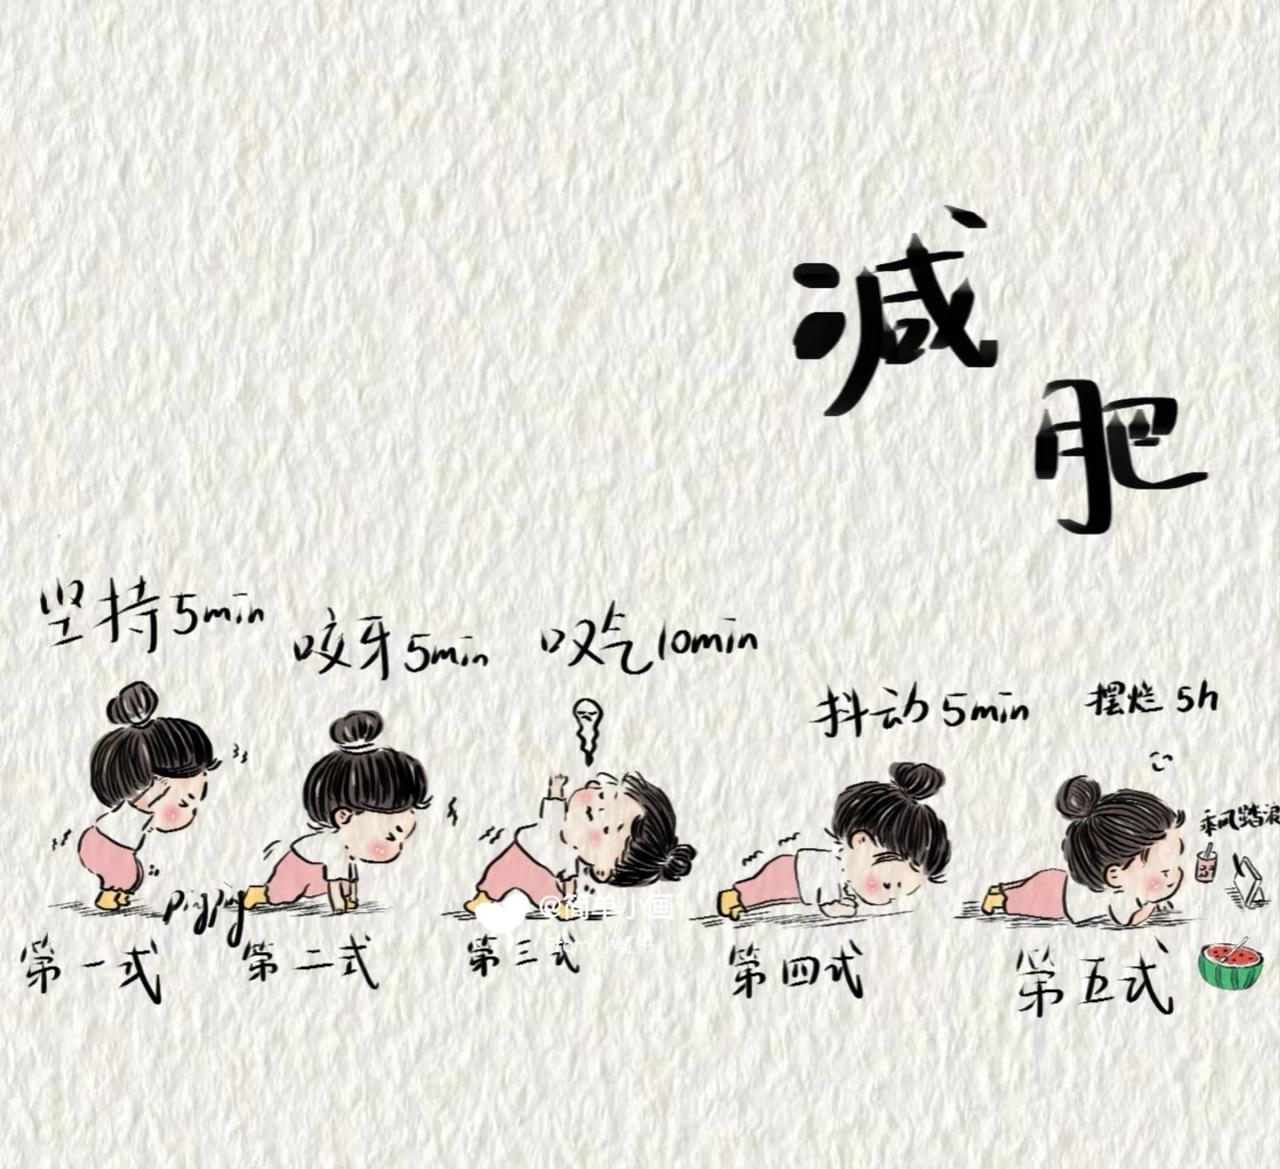 减
肥
坚持5min
咬牙5min
叹气10min
抖动5min
摆烂5h
乘风踏浪
pigpig
@简单小画
第一式
第二式
第三式
第四式
第五式